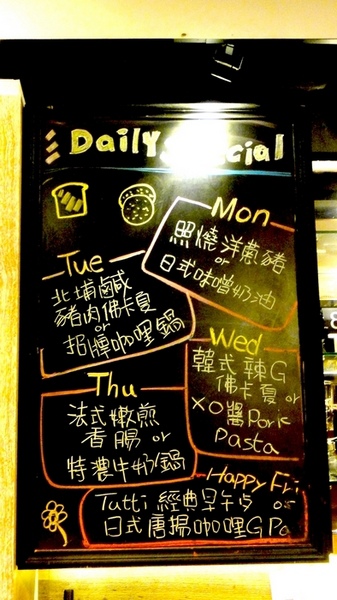 Daily Special
Mon
照燒洋蔥豬
or
日式味噌奶油
Tue
北埔鹹
豬肉佛卡夏
or
招牌咖哩鍋
Wed
韓式辣G
佛卡夏 or
XO醬Pork
Pasta
Thu
法式嫩煎
香腸 or
特濃牛奶鍋
Happy Fri
Tutti 經典早午夕 or
日式唐揚咖哩G Pa